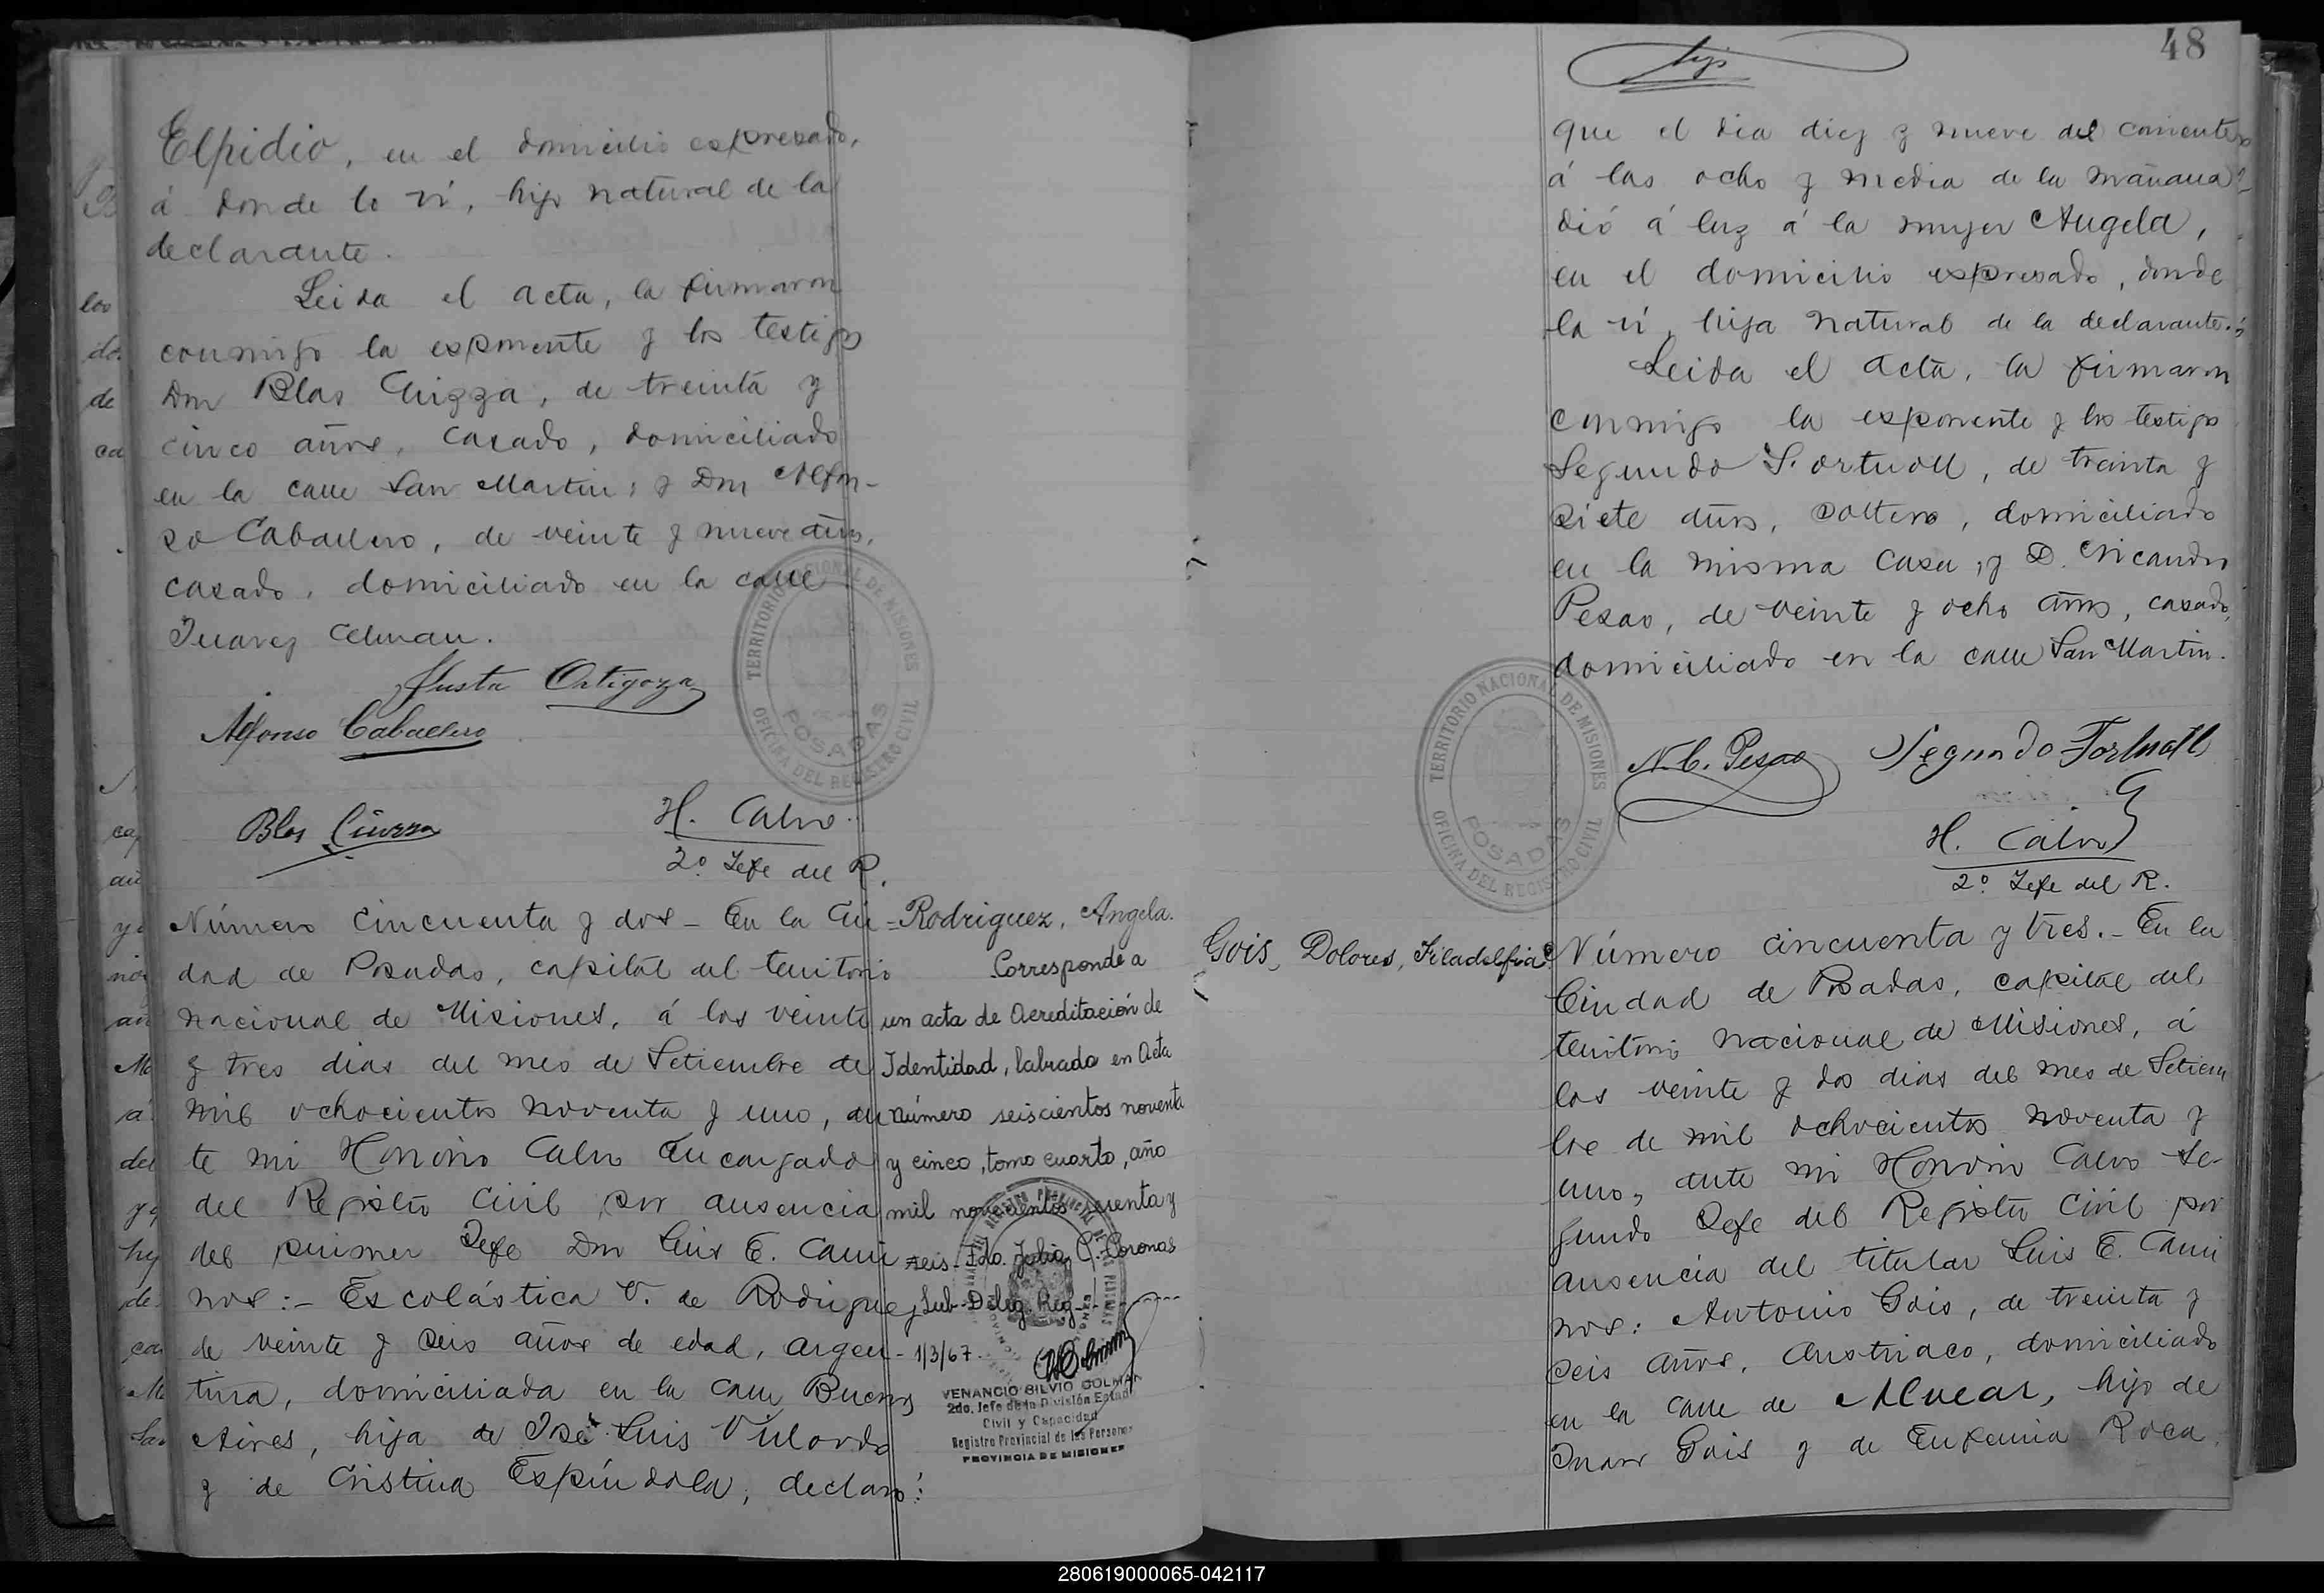 Elpidio, en el domicilio espresado,
á donde lo ví, hijo natural de la
declarante.
Leida el acta, la firmaron
conmigo la esponente y los testigos
Don Blas Ciuzza, de treinta y
cinco años, casado, domiciliado
en la calle San Martin; y Don Alfon-
so Caballero, de veinte y nueve años,
casado, domiciliado en la calle
Juarez Celman.
Justa Ortigoza
Alfonso Caballero
Blas
H. Calvo
2º Jefe del R.
TERRITORIO NACIONAL DE MISIONES
POSADAS
OFICINA DEL REGISTRO CIVIL
Número cincuenta y dos - En la Ciu-
dad de Posadas, capital del territorio
nacional de Misiones, á los veinte
y tres dias del mes de Setiembre de
mil ochocientos noventa y uno, an
te mi Honorio Calvo Encargado
del Registro Civil por ausencia
del primer Jefe Don Luis E. Cami
nos:- Escolástica V. de Rodriguez
de veinte y seis años de edad, argen-
tina, domiciliada en la calle Buenos
Aires, hija de José Luis
y de Cristina Espíndola, declaro:
Rodriguez, Angela.
Corresponde a
un acta de Acreditación de
Identidad, labrada en Acta
número seiscientos noventa
y cinco, tomo cuarto, año
mil novecientos sesenta y
seis. Fdo. Julia C. Coronas
Sub-Deleg. Reg.
1/3/67.
VENANCIO SILVIO COLMAN
2do. Jefe de la División Estado
Civil y Capacidad
Registro Provincial de las Personas
PROVINCIA DE MISIONES
48
que el dia diez y nueve del corriente
á las ocho y media de la mañana
dió á luz á la mujer Angela,
en el domicilio espresado, donde
la ví, hija natural de la declarante.
Leida el acta, la firmaron
conmigo la esponente y los testigos
Segundo S. Fortuoll, de treinta y
siete años, soltero, domiciliado
en la misma casa, y D. Nicandro
Pesao, de veinte y ocho años, casado,
domiciliado en la calle San Martin.
TERRITORIO NACIONAL DE MISIONES
POSADAS
OFICINA DEL REGISTRO CIVIL
N. C. Pesao Segundo Fortuoll
H. Calvo
2º Jefe del R.
Gois, Dolores, Filadelfia
Número cincuenta y tres.- En la
Ciudad de Posadas, capital del
territorio nacional de Misiones, á
los veinte y dos dias del mes de Setiem
bre de mil ochocientos noventa y
uno, ante mi Honorio Calvo Se-
gundo Jefe del Registro Civil por
ausencia del titular Luis E. Cami
nos: Antonio Gois, de treinta y
seis años, Austriaco, domiciliado
en la calle de Alvear, hijo de
Juan Gois y de Eufemia Roca
280619000065-042117